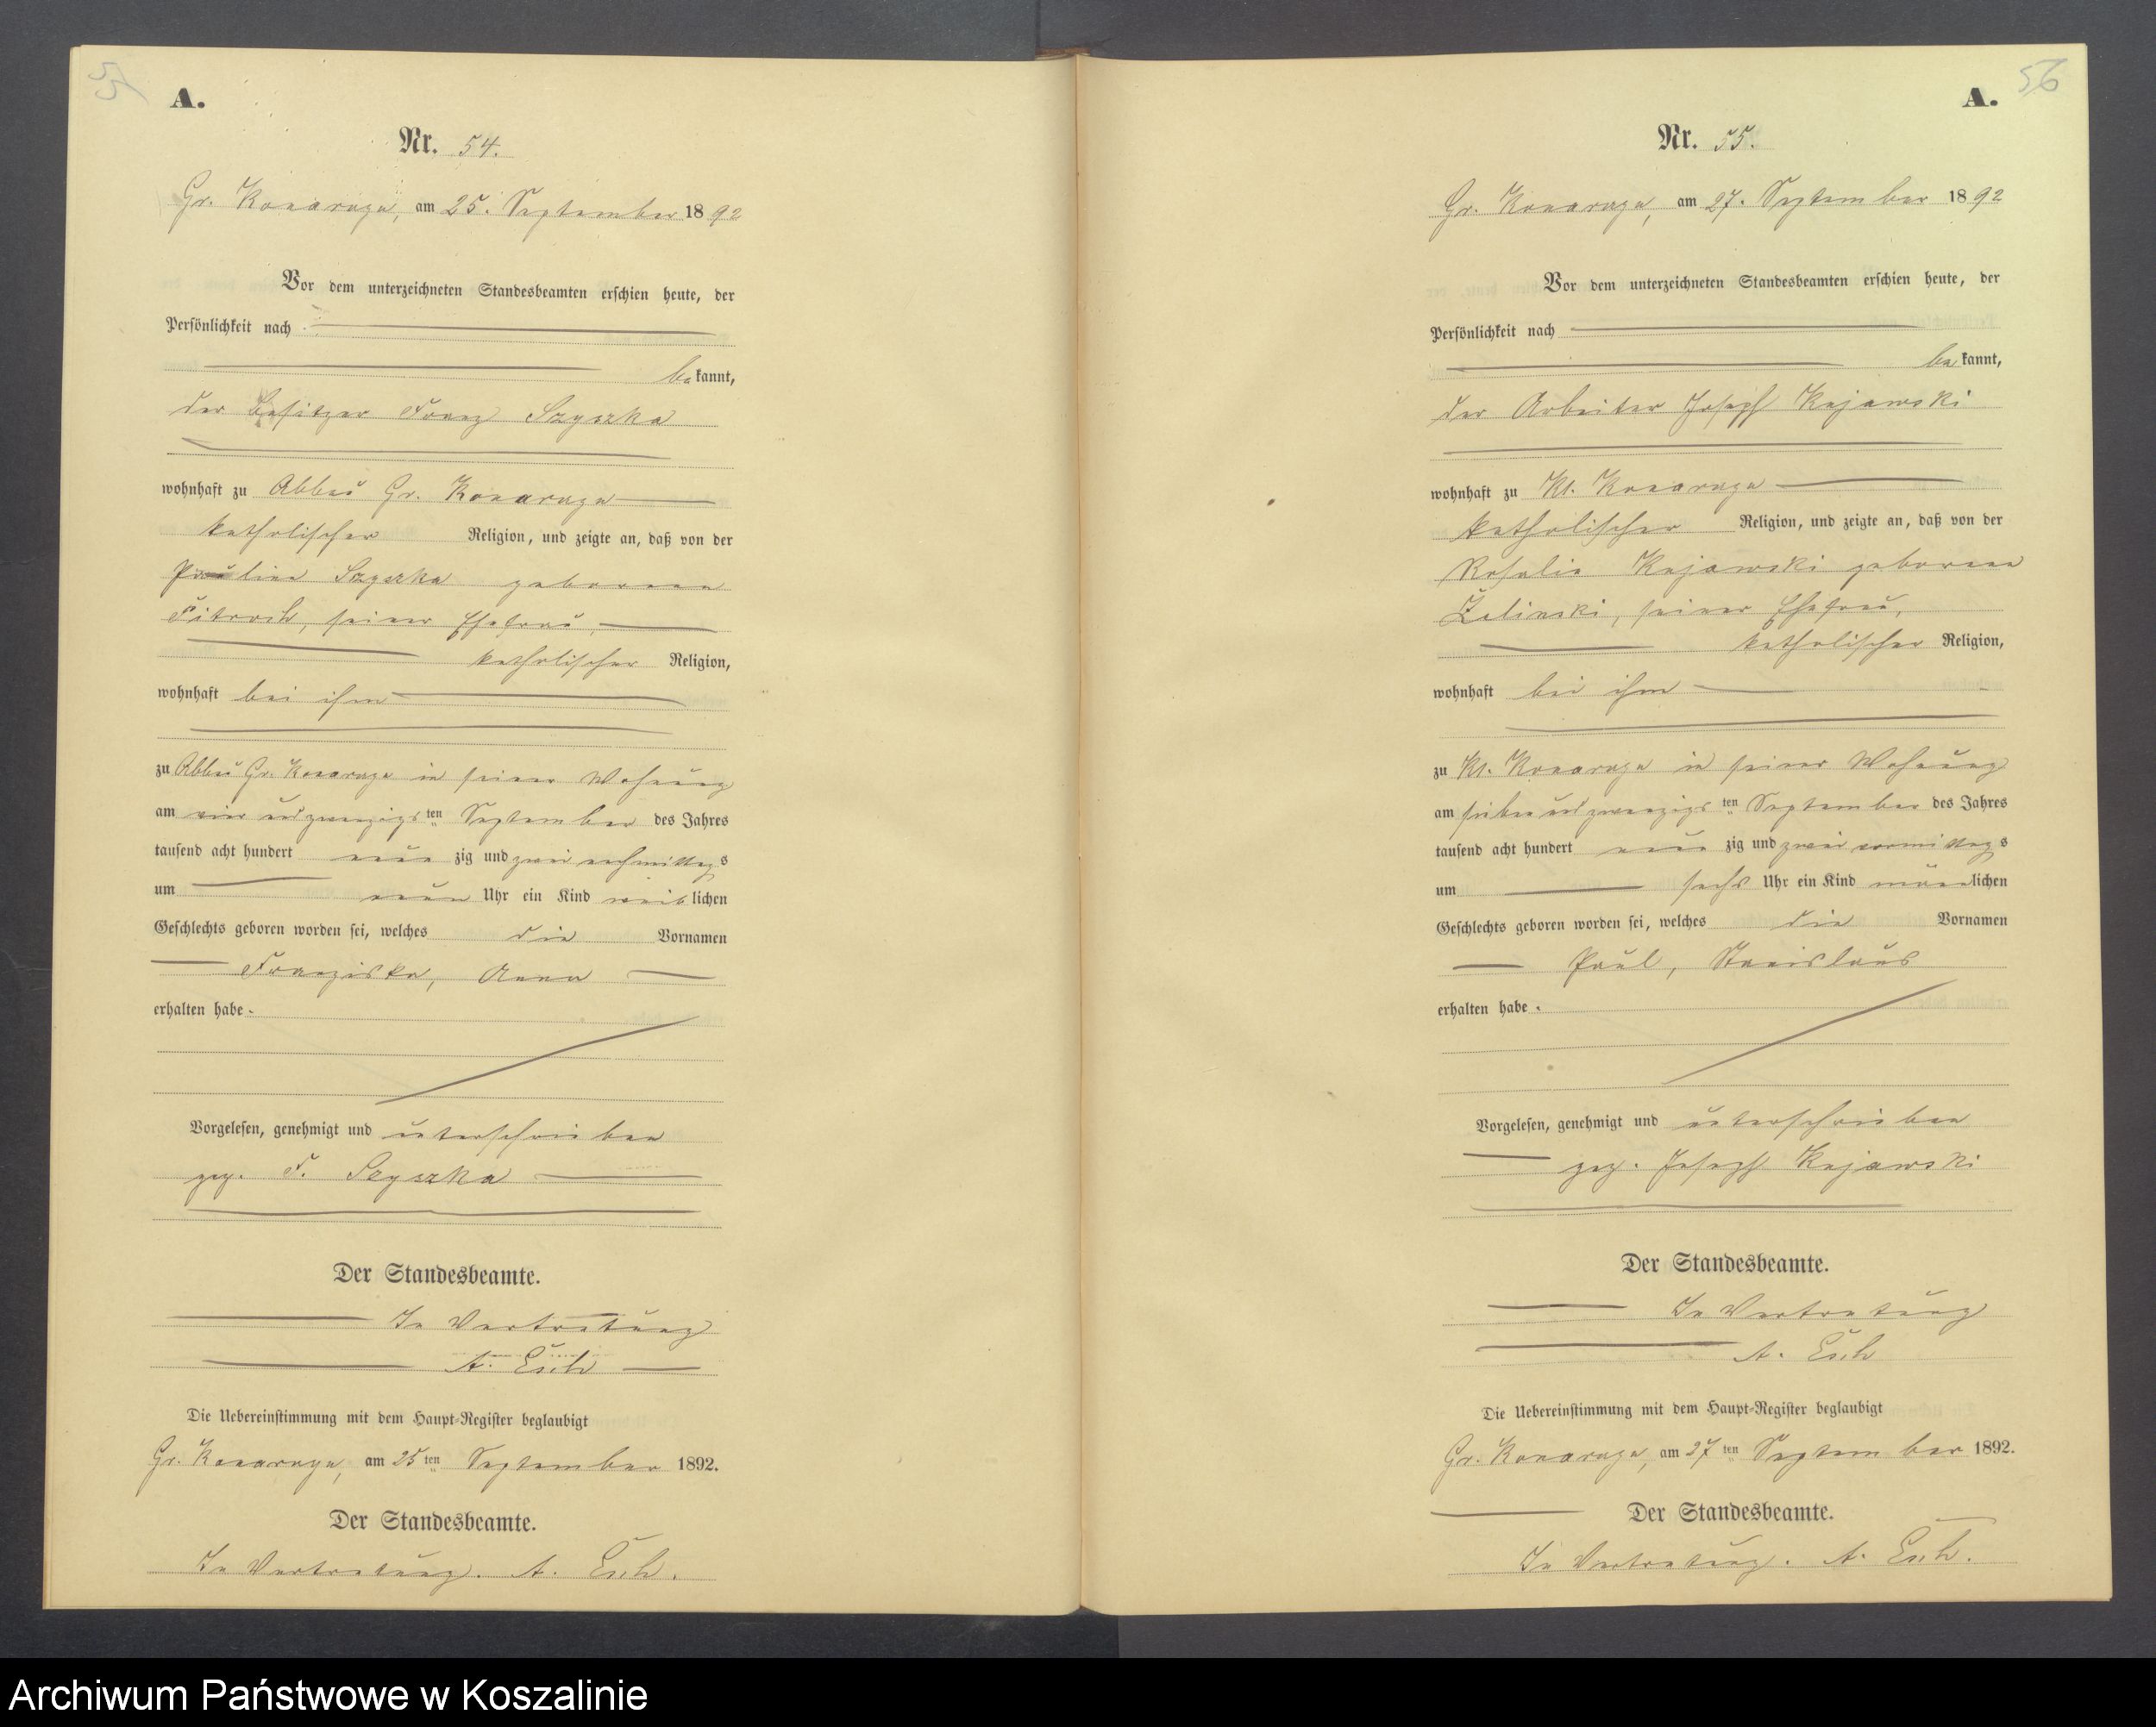 A.
Nr. 54.
Gr. Konarzyn, am 25. September 1892
Vor dem unterzeichneten Standesbeamten erschien heute, der
Persönlichkeit nach
bekannt,
der Besitzer Franz Szyszka
wohnhaft zu Abbau Gr. Konarzyn
katholischer Religion, und zeigte an, daß von der
Pauline Szyszka geborenen
seiner Ehefrau,
katholischer Religion,
wohnhaft bei ihm
zu Abbau Gr. Konarzyn in seiner Wohnung
am vier und zwanzigsten September des Jahres
tausend acht hundert neunzig und zwei nachmittags
um neun Uhr ein Kind weiblichen
Geschlechts geboren worden sei, welches die Vornamen
Franziska, Anna
erhalten habe.
Vorgelesen, genehmigt und unterschrieben
gez. F. Szyszka
Der Standesbeamte.
In Vertretung
A. Esch
Die Uebereinstimmung mit dem Haupt-Register beglaubigt
Gr. Konarzyn, am 25ten September 1892.
Der Standesbeamte.
In Vertretung. A. Esch.
56
A.
Nr. 55.
Gr. Konarzyn, am 27. September 1892
Vor dem unterzeichneten Standesbeamten erschien heute, der
Persönlichkeit nach
bekannt,
der Arbeiter Joseph Kujawski
wohnhaft zu Kl. Konarzyn
katholischer Religion, und zeigte an, daß von der
Rosalie Kujawski geborenen
Zalinski, seiner Ehefrau,
katholischer Religion,
wohnhaft bei ihm
zu Kl. Konarzyn in seiner Wohnung
am sieben und zwanzigsten September des Jahres
tausend acht hundert neunzig und zwei vormittags
um sechs Uhr ein Kind männlichen
Geschlechts geboren worden sei, welches die Vornamen
Paul, Stanislaus
erhalten habe.
Vorgelesen, genehmigt und unterschrieben
gez. Joseph Kujawski
Der Standesbeamte.
In Vertretung
A. Esch
Die Uebereinstimmung mit dem Haupt-Register beglaubigt
Gr. Konarzyn, am 27ten September 1892.
Der Standesbeamte.
In Vertretung. A. Esch.
Archiwum Państwowe w Koszalinie